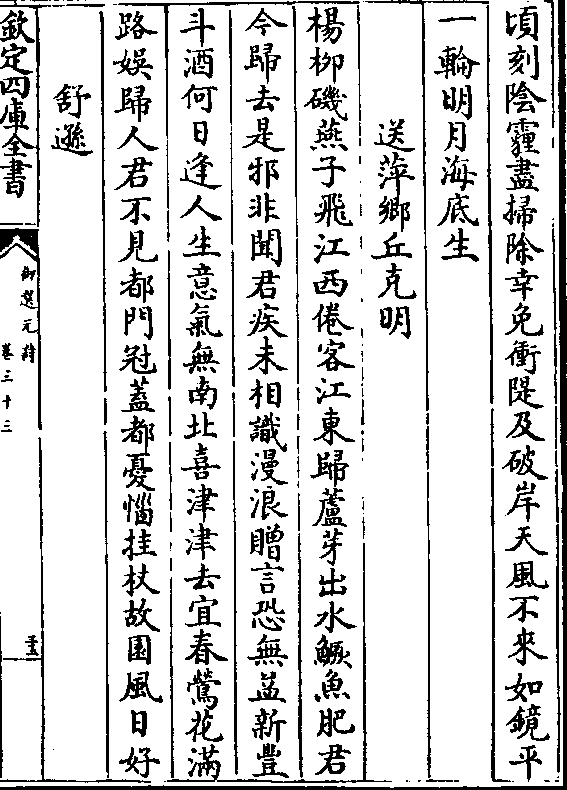 頃刻陰霾盡掃除幸免衝隄及破岸天風不來如鏡平
一輪明月海底生
送萍鄉丘克明
楊栁磯燕子飛江西倦客江東歸蘆芽出水鱖魚肥君
今歸去是邪非聞君疾未相識漫浪贈言恐無益新豐
斗酒何日逢人生意氣無南北喜津津去宜春鶯花滿
路娱歸人君不見都門冠蓋都憂惱挂杖故園風日好
舒遜
欽定四庫全書
御選元詩
卷三十三